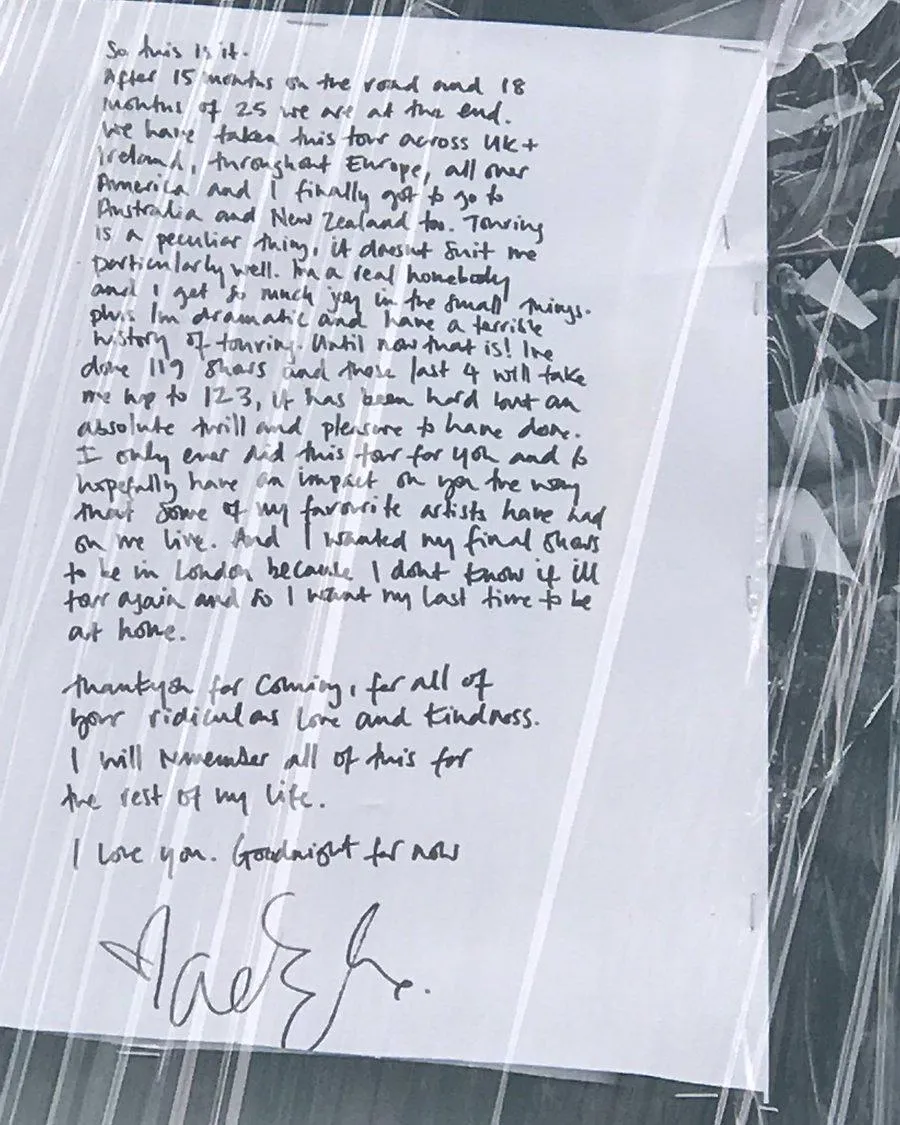 So this is it.
After 15 months on the road and 18
months of 25 we are at the end.
We have taken this tour across UK+
Ireland, throughout Europe, all over
America and I finally got to go to
Australia and New Zealand too. Touring
is a peculiar thing, it doesnt suit me
particularly well. Im a real homebody
and I get so much joy in the small things.
plus Im dramatic and have a terrible
history of touring. Until now that is! Ive
done 119 shows and these last 4 will take
me up to 123, it has been hard but an
absolute thrill and pleasure to have done.
I only ever did this tour for you and to
hopefully have an impact on you the way
that some of my favourite artists have had
on me live. And I wanted my final shows
to be in London because I dont know if ill
tour again and so I want my last time to be
at home.
Thankyou for coming, for all of
your ridiculous love and kindness.
I will remember all of this for
the rest of my life.
I love you. Goodnight for now